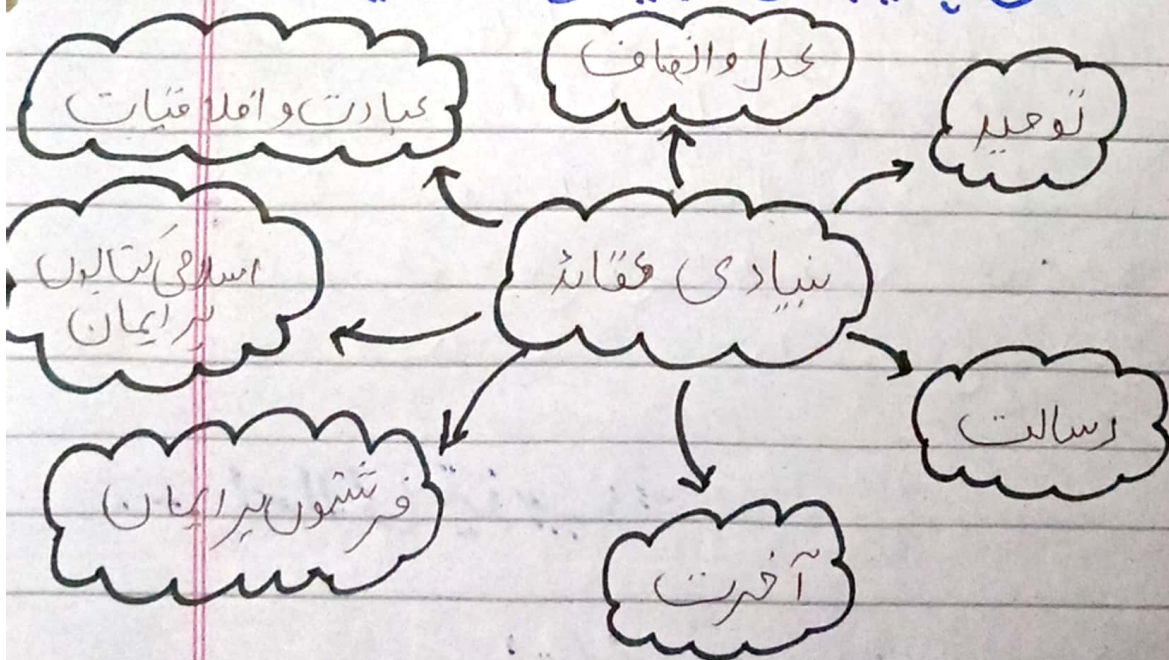 بنیادی عقائد
توحید
رسالت
آخرت
فرشتوں پر ایمان
اسلامی کتابوں
پر ایمان
عبادت و اخلاقیات
عدل و انصاف